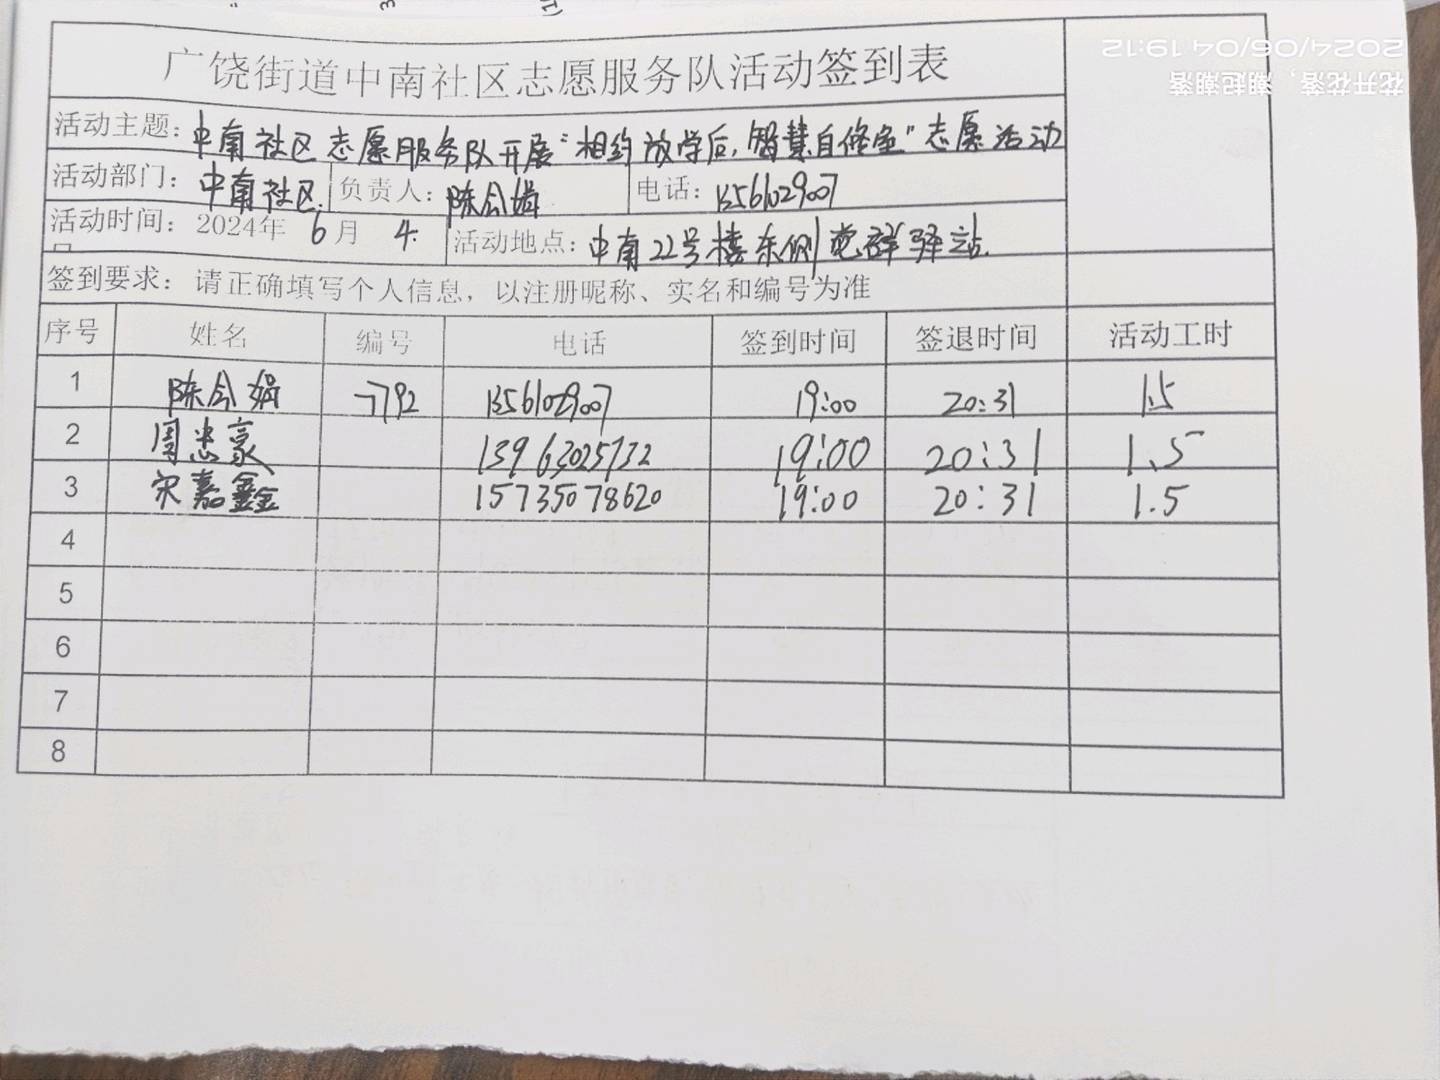 广饶街道中南社区志愿服务队活动签到表
活动主题：中南社区志愿服务队开展“相约放学后，智慧自修室”志愿活动
活动部门：中南社区 负责人：陈会娟 电话：13561029007
活动时间：2024年 6月 4. 活动地点：中南22号楼东侧党群驿站.
签到要求：请正确填写个人信息，以注册昵称、实名和编号为准
序号 姓名 编号 电话 签到时间 签退时间 活动工时
1 陈会娟 7792 13561029007 19:00 20:31 1.5
2 周忠豪 13963025732 19:00 20:31 1.5
3 宋嘉鑫 15735078620 19:00 20:31 1.5
4
5
6
7
8
花开花落，潮起潮落
2024/06/04 19:12